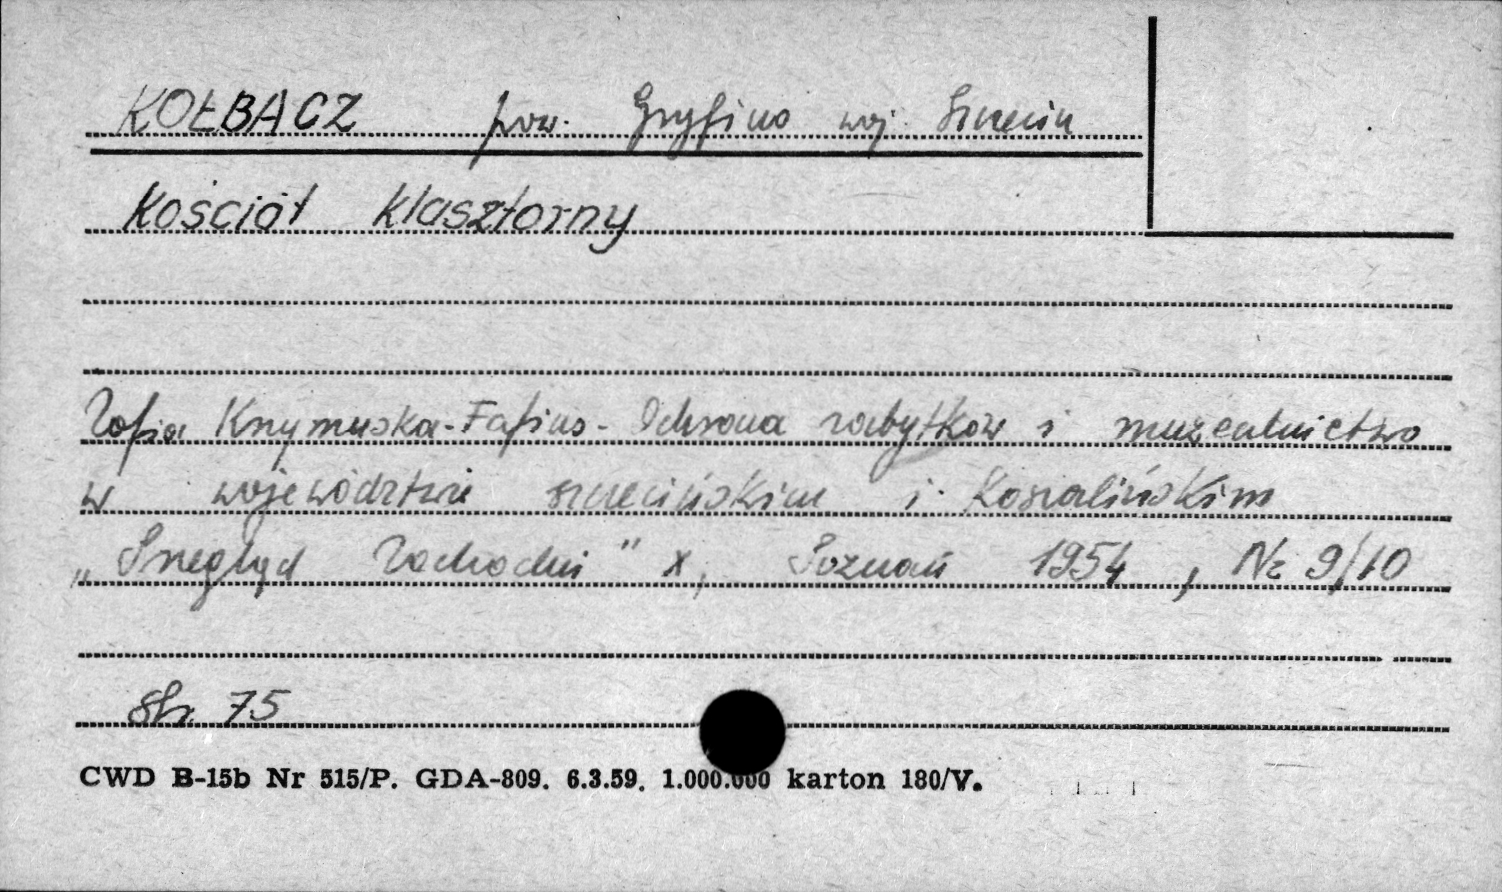 KOŁBACZ pow. Gryfino woj. Szczecin
Kościół klasztorny
Zofia Krzymuska-Fafius - Ochrona zabytków i muzealnictwo
w województwie szczecińskim i koszalińskim
„Przegląd Zachodni" X, Poznań 1954, Nr 9/10
str. 75
CWD B-15b Nr 515/P. GDA-809. 6.3.59. 1.000.000 karton 180/V.